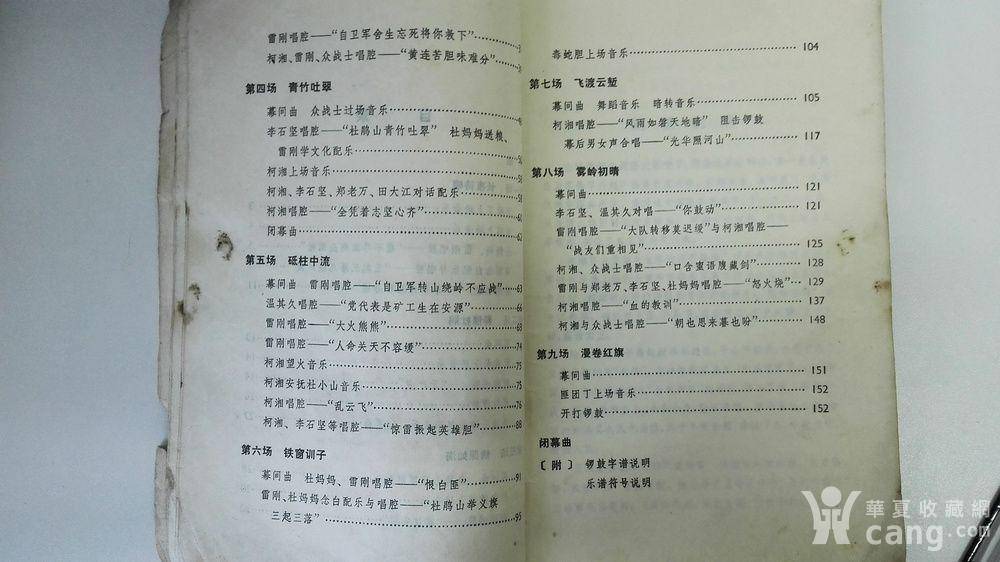 雷刚唱腔——“自卫军舍生忘死将你救下”
柯湘、雷刚、众战士唱腔——“黄连苦胆味难分”
第四场 青竹吐翠
幕间曲 众战士过场音乐
李石坚唱腔——“杜鹃山青竹吐翠” 杜妈妈送粮、
雷刚学文化配乐
柯湘上场音乐
柯湘、李石坚、郑老万、田大江对话配乐
柯湘唱腔——“全凭着志坚心齐” 60
闭幕曲 62
第五场 砥柱中流
幕间曲 雷刚唱腔——“自卫军转山绕岭不应战” 63
温其久唱腔——“党代表是矿工生在安源” 66
雷刚唱腔——“大火熊熊” 68
雷刚唱腔——“人命关天不容缓” 74
柯湘望火音乐 75
柯湘安抚杜小山音乐 75
柯湘唱腔——“乱云飞” 76
柯湘、李石坚等唱腔——“惊雷振起英雄胆” 88
第六场 铁窗训子
幕间曲 杜妈妈、雷刚唱腔——“恨白匪” 91
雷刚、杜妈妈念白配乐与唱腔——“杜鹃山举义旗
三起三落” 95
毒蛇胆上场音乐 104
第七场 飞渡云堑
幕间曲 舞蹈音乐 暗转音乐 105
柯湘唱腔——“风雨如磐天地暗” 阻击锣鼓
幕后男女声合唱——“光华照河山” 117
第八场 雾岭初晴
幕间曲 121
李石坚、温其久对唱——“你鼓动” 121
雷刚唱腔——“大队转移莫迟缓”与柯湘唱腔——
“战友们重相见” 125
柯湘、众战士唱腔——“口含蜜语腹藏剑” 128
雷刚与郑老万、李石坚、杜妈妈唱腔——“怒火烧” 129
柯湘唱腔——“血的教训” 137
柯湘与众战士唱腔——“朝也思来暮也盼” 148
第九场 漫卷红旗
幕间曲 151
匪团丁上场音乐 152
开打锣鼓 152
闭幕曲
〔附〕 锣鼓字谱说明
乐谱符号说明
華夏收藏網
cang.com